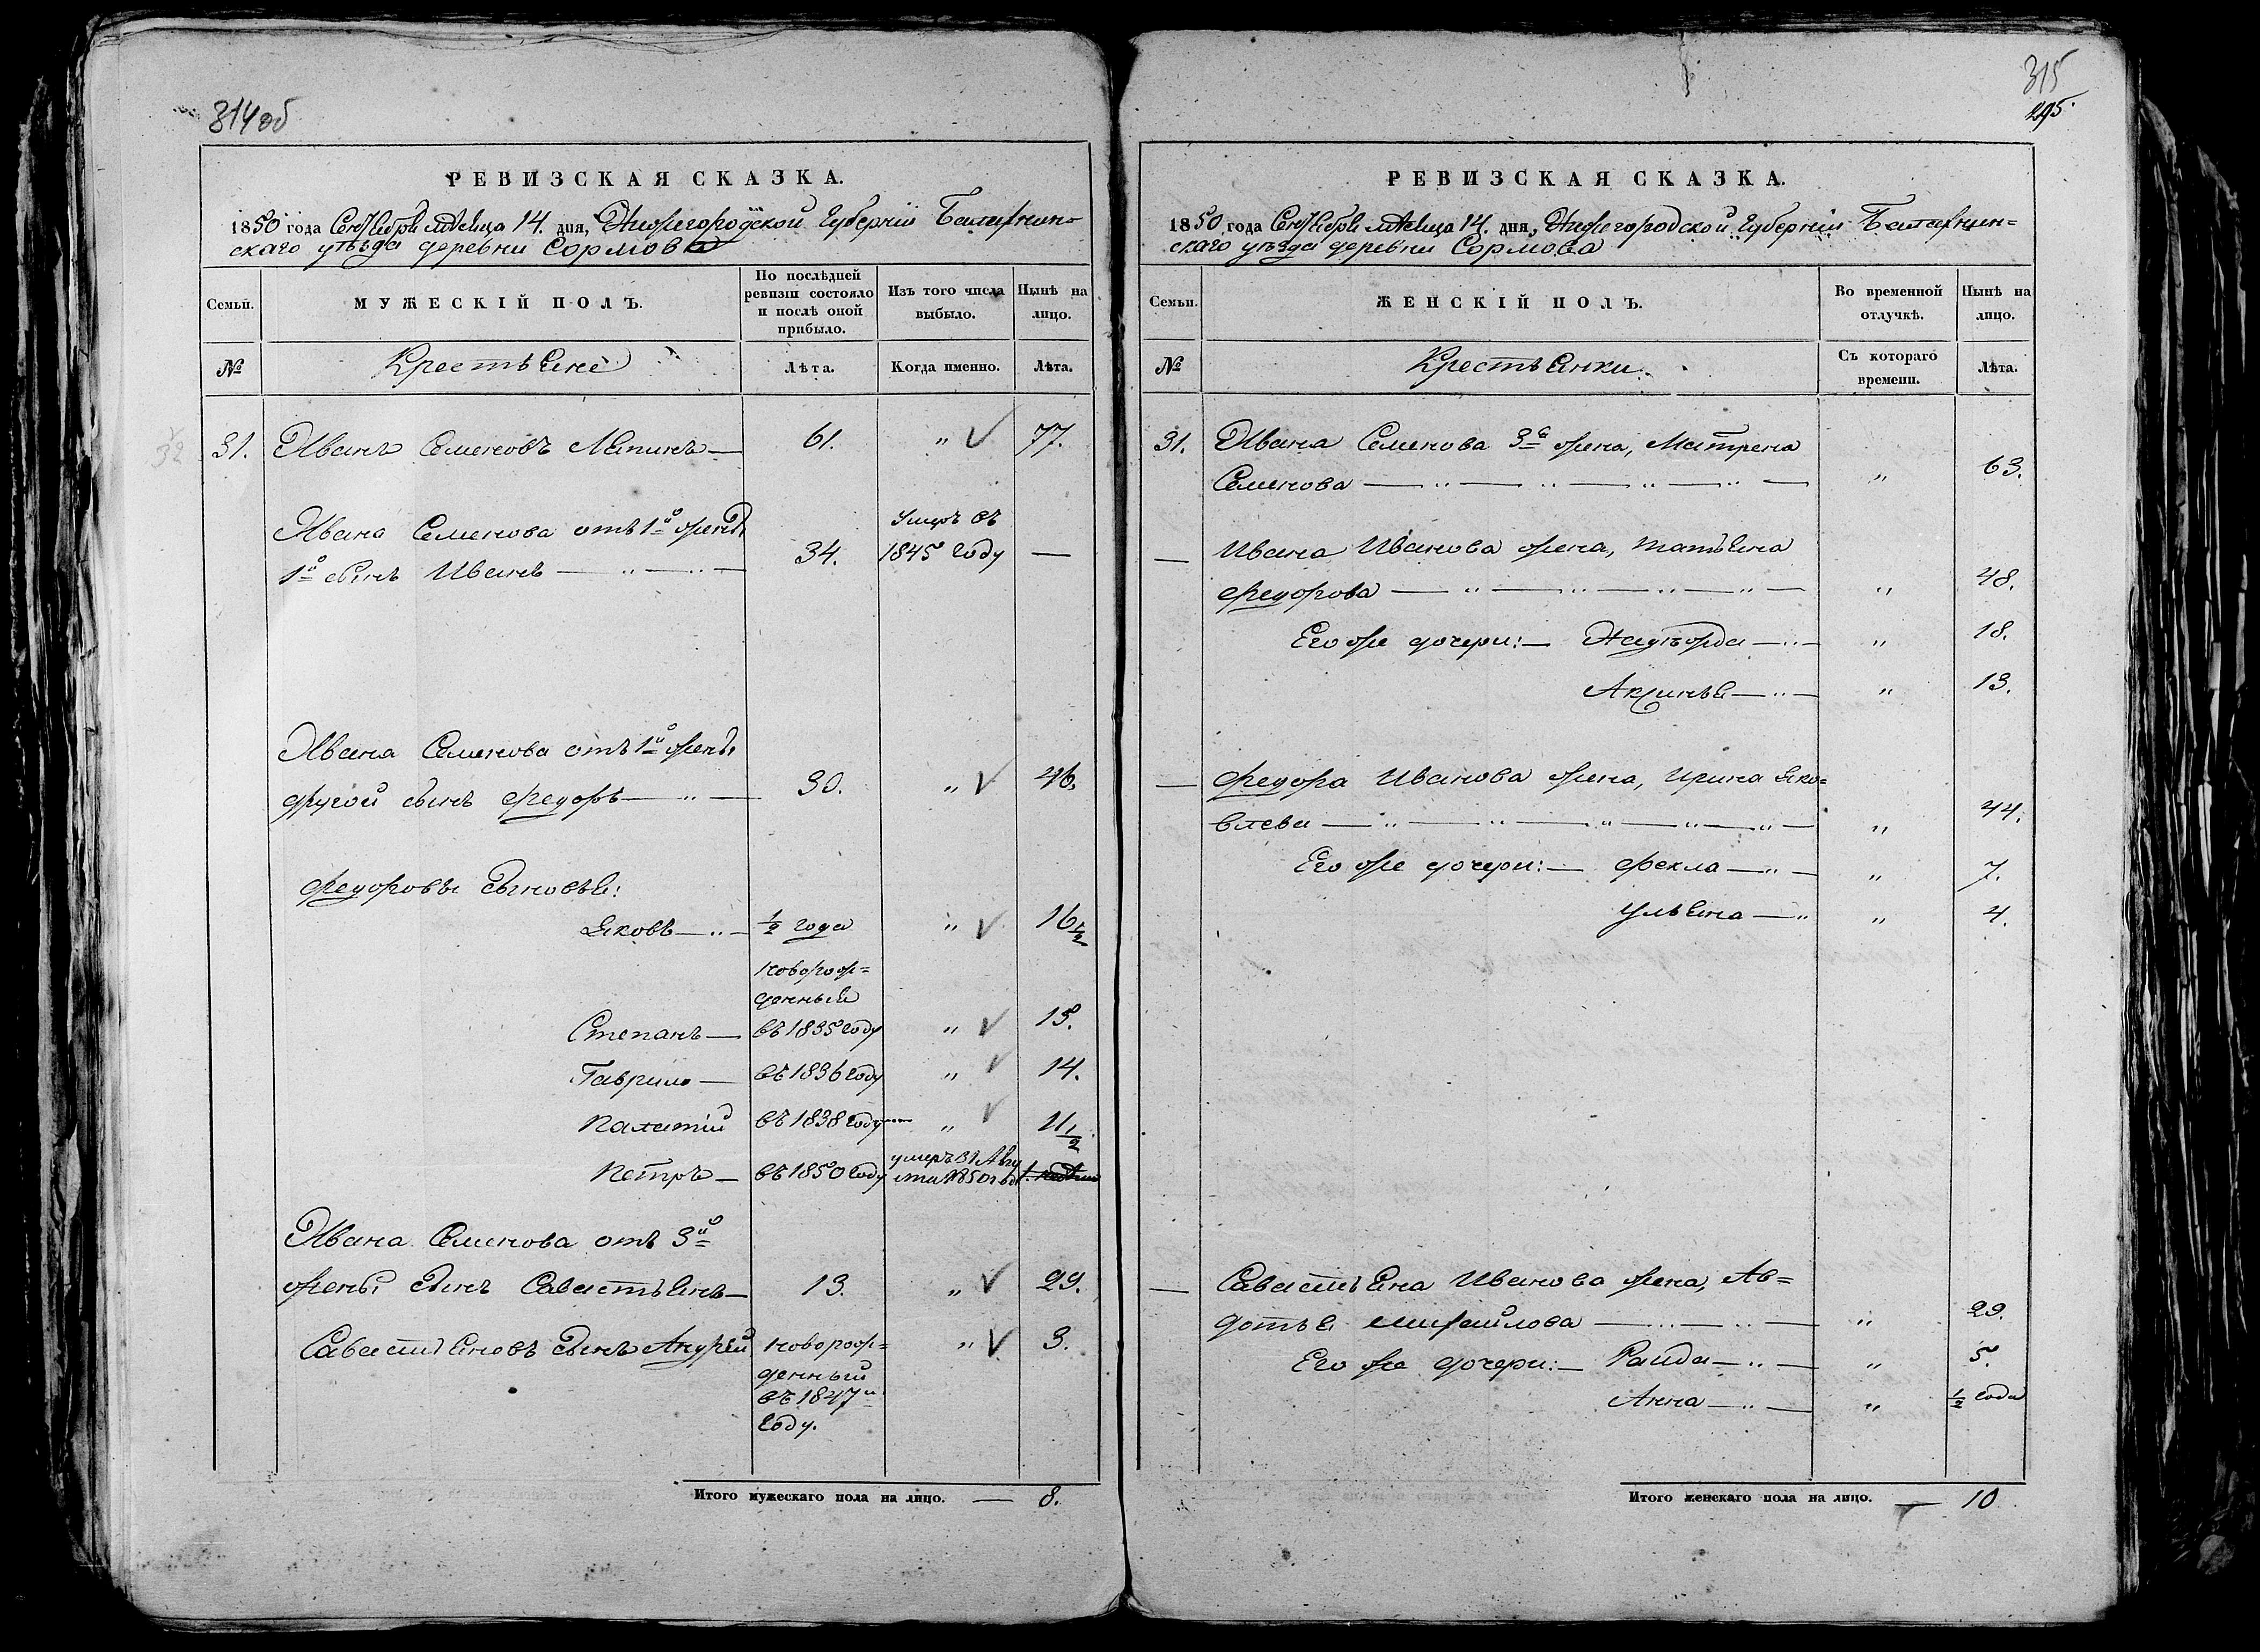 314 об
РЕВИЗСКАЯ СКАЗКА.
1850 года Сентября мѣсяца 14. дня, Нижегородской Губерніи Балахнин-
скаго уѣзда деревни Сормова
Семьи.
МУЖЕСКІЙ ПОЛЪ.
По послѣдней
ревизіи состояло
и послѣ оной
прибыло.
Изъ того числа
выбыло.
Нынѣ на
лицо.
№
Крестьяне
Лѣта.
Когда именно.
Лѣта.
31. Иванъ Семеновъ Лапинъ — 61. „ 77.
Ивана Семенова отъ 1й жены
1й сынъ Иванъ — 34. Умеръ въ
1845 году —
Ивана Семенова отъ 1й жены
другой сынъ Федоръ — 30. „ 46.
Федоровы сыновья:
Яковъ — ½ года „ 16½
новорож=
денный
Степанъ — въ 1835 году „ 15.
Гаврило — въ 1836 году „ 14.
Палатій въ 1838 году „ 11½
Петръ — въ 1850 году умеръ 31 Авгу
ста 1850 года
Ивана Семенова отъ 3й
жены сынъ Савастьянъ — 13. „ 29.
Савастьяновъ сынъ Андрей новорож= „ 3.
денный
въ 1847м
году.
Итого мужескаго пола на лицо. — 8.
315
295.
РЕВИЗСКАЯ СКАЗКА.
1850 года Сентября мѣсяца 14. дня, Нижегородской Губерніи Балахнин=
скаго уѣзда деревни Сормова
Семьи.
ЖЕНСКІЙ ПОЛЪ.
Во временной
отлучкѣ.
Нынѣ на
лицо.
№
Крестьянки.
Съ котораго
времени.
Лѣта.
31. Ивана Семенова 3я жена, Матрена
Семенова — „ 63.
— Ивана Иванова жена, Татьяна
Федорова — „ 48.
Его же дочери: — Надежда — „ 18.
Аксинья — „ 13.
— Федора Иванова жена, Ирина Яко=
влева — „ 44.
Его же дочери: — Фекла — „ 7.
Ульяна — „ 4.
— Савастьяна Иванова жена, Ав=
дотья Михайлова — „ 29.
Его же дочери: — Раида — „ 5.
Анна — „ ½ года
Итого женскаго пола на лицо. — 10